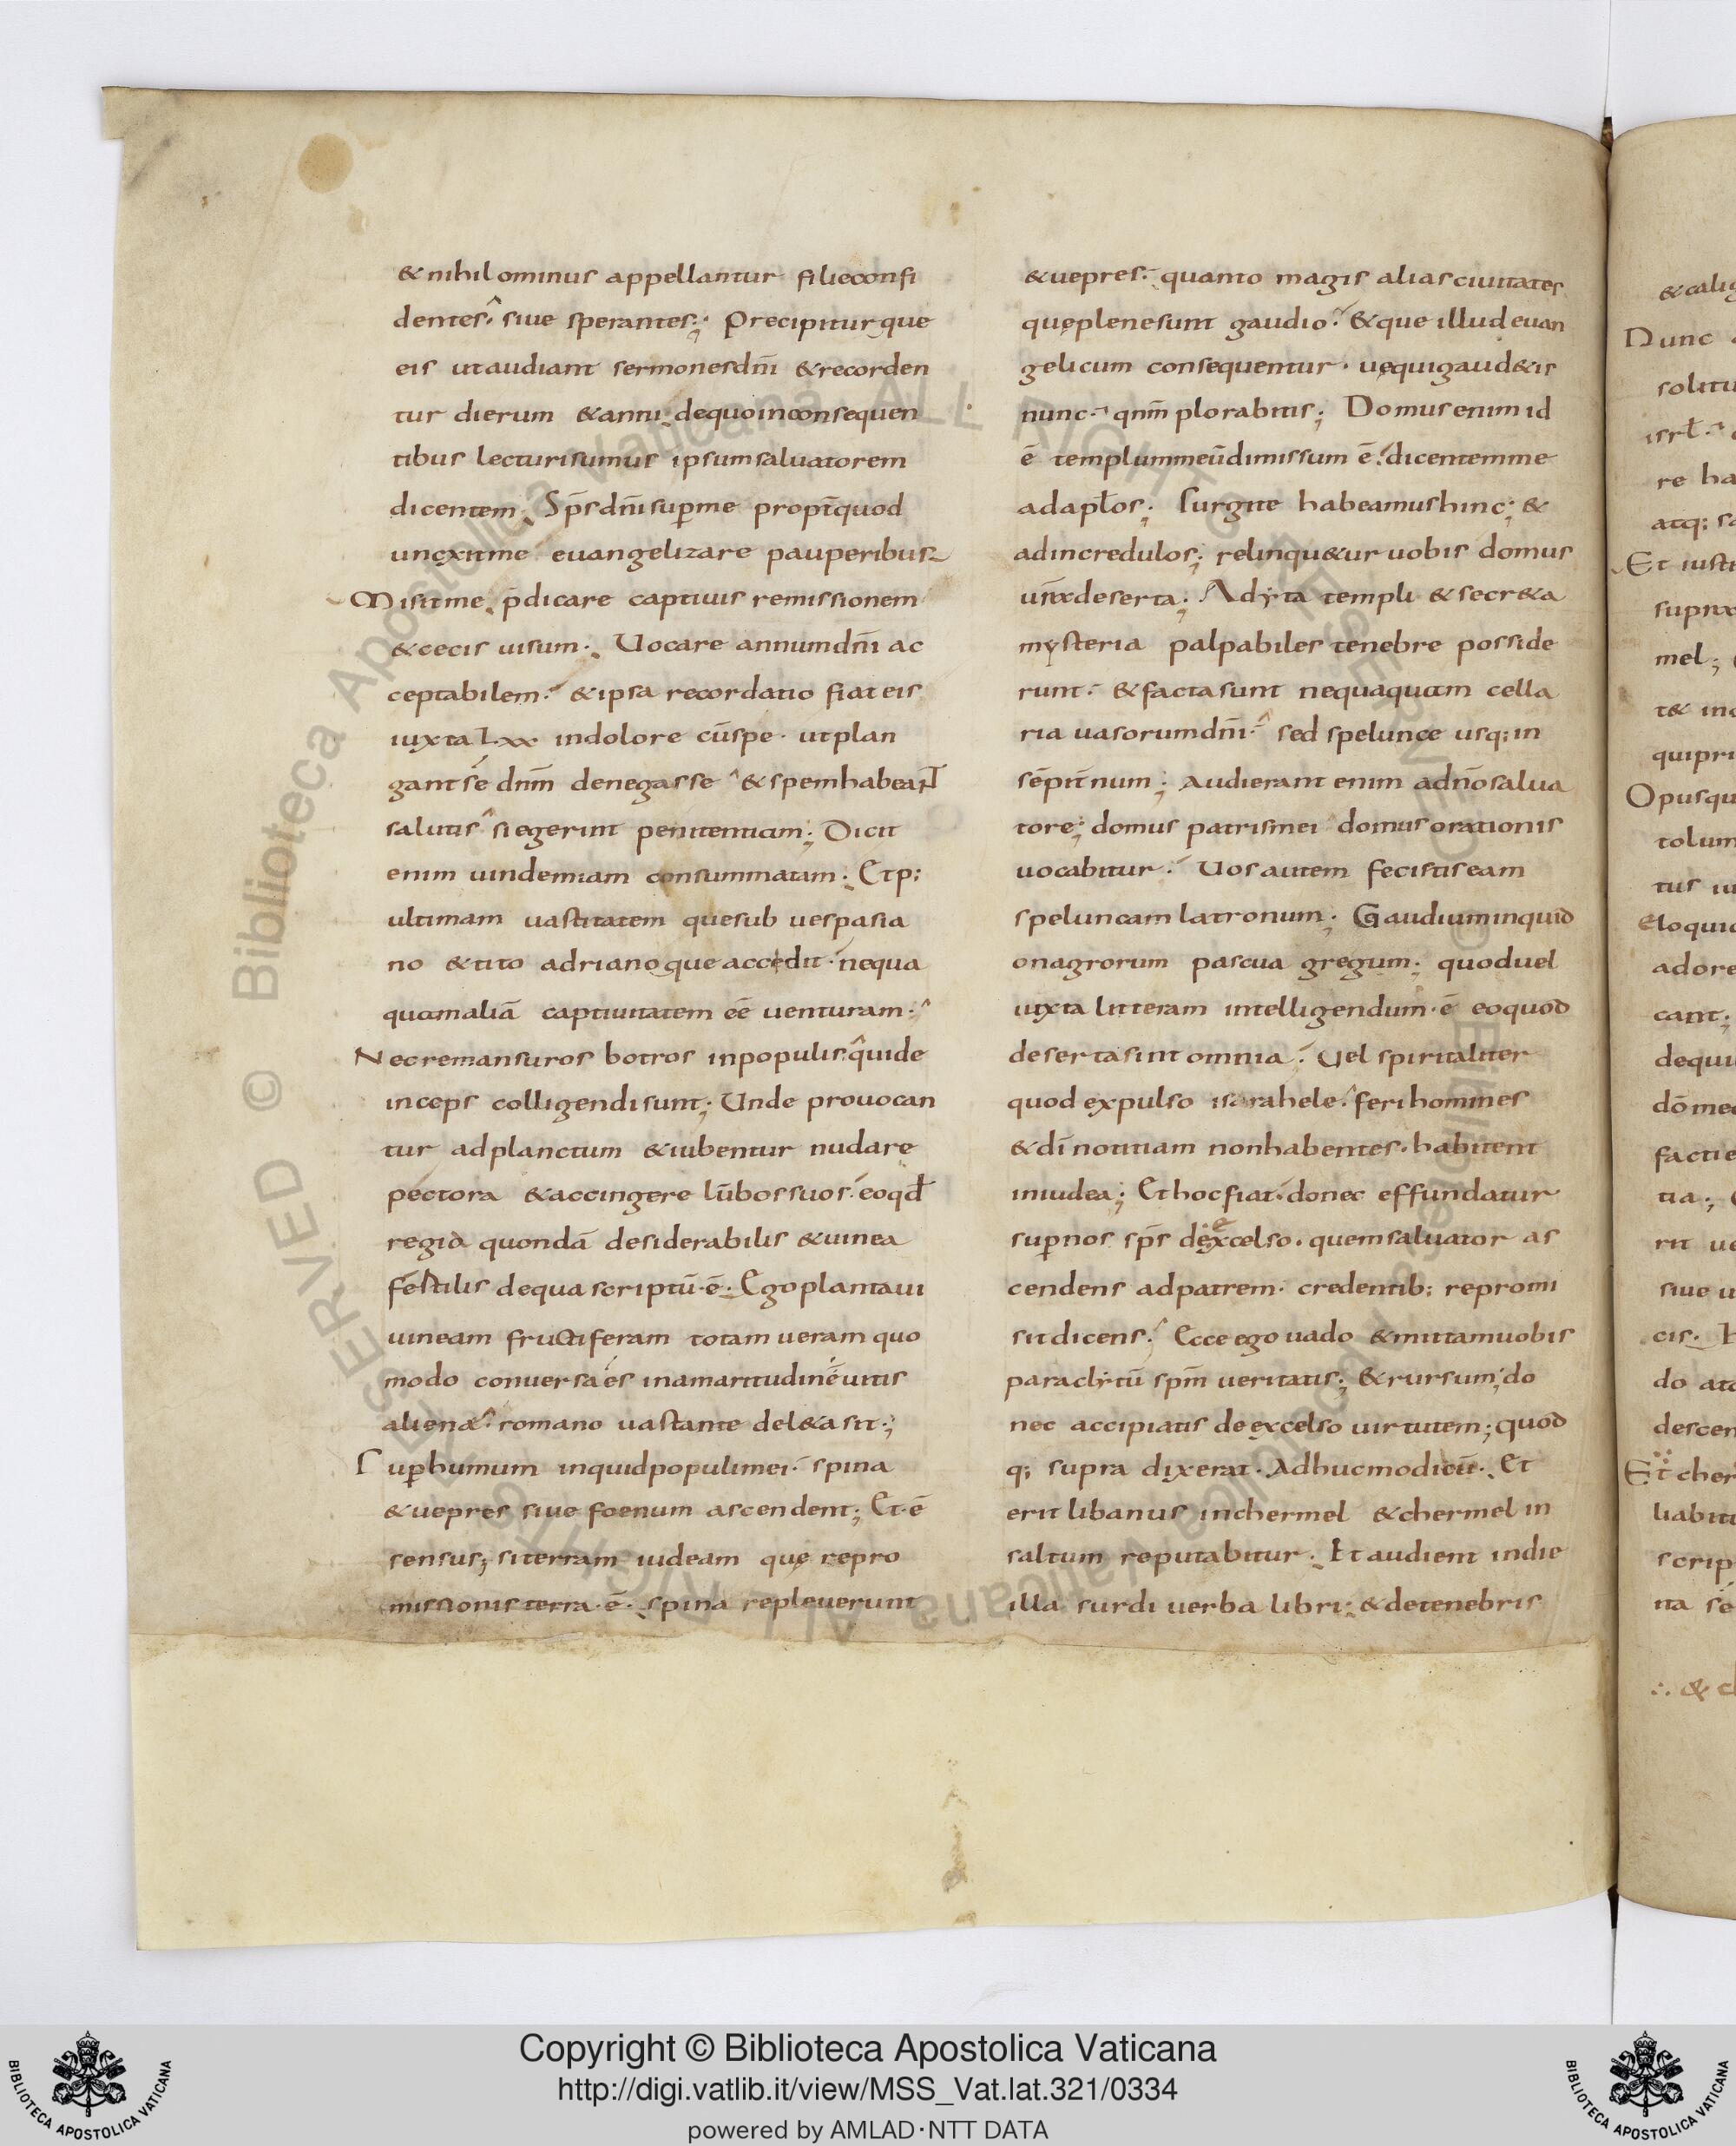 & nihilominus appellantur filie confi
dentes. siue sperantes; Precipiturque
eis ut audiant sermones dñi & recorden
tur dierum & anni. de quo in consequen
tibus lecturi sumus ipsum saluatorem
dicentem. Sp̄s dñi sup me propt̄ quod
unexit me euangelizare pauperibus
Misit me p̄dicare captiuis remissionem
& cecis uisum. Uocare annum dñi ac
ceptabilem. & ipsa recordatio fiat eis
iuxta Lxx in dolore cū spe. ut plan
gant se dnm̄ denegasse & spem habeant
salutis si egerint penitentiam; Dicit
enim uindemiam consummatam. Et p;
ultimam uastitatem que sub uespasia
no & tito adriano que accedit. nequa
quam aliā captiuitatem eē uenturam.
Nec remansuros botros in populis. qui de
inceps colligendi sunt; Unde prouocan
tur ad planctum & iubentur nudare
pectora & accingere lūbos suos. eo qd̄
regio quondā desiderabilis & uinea
fertilis de qua scriptū. ē. Ego plantaui
uineam fructiferam totam ueram quo
modo conuersa es in amaritudinē uitis
aliena. romano uastante del&a sit;
Sup humum inquid populi mei. spina
& uepres siue foenum ascendent; Et. ē
sensus; si terram iudeam quę repro
missionis terra. ē. spina repleuerunt
& uepres. quanto magis alias ciuitates
quę plene sunt gaudio. & que illud euan
gelicum consequentur. uę qui gaud&is
nunc. qnm̄ plorabitis; Domus enim id
ē templum meū dimissum ē. dicentem me
ad aplos; Surgite habeamus hinc; &
ad incredulos; relinqu&ur uobis domus
ur̄a deserta; Adyta templi & secr&a
mysteria palpabiles tenebre posside
runt. & facta sunt nequaquam cella
ria uasorum dñi. sed spelunce usq; in
sēpit̄num; Audierant enim a dño salua
tore; domus patris mei domus orationis
uocabitur. Uos autem fecistis eam
speluncam latronum; Gaudium inquid
onagrorum pascua gregum; quod uel
iuxta litteram intelligendum. ē eo quod
deserta sint omnia. Uel spiritaliter
quod expulso israhele. feri homines
& dī notitiam non habentes. habitent
in iudea; Et hoc fiat. donec effundatur
sup nos sp̄s de excelso. quem saluator as
cendens ad patrem. credentib; repromi
sit dicens. Ecce ego uado & mittam uobis
paraclytū sp̄m ueritatis; & rursum; do
nec accipiatis de excelso uirtutem; quod
q; supra dixerat. Adhuc modicū. Et
erit libanus in chermel & chermel in
saltum reputabitur. Et audient in die
illa surdi uerba libri; & de tenebris
& calig
Nunc
solitu
isrl.
re ha
atq; sa
Et iusti
supra
mel;
t& in
qui pri
Opus qu
tolum
tus iu
Eloquio
adore
cant;
de qui
dō med
factie
tia;
rit ue
siue u
cis.
do atq
descen
Et cher
liabitu
scrip
ita se
∴ & ch
Copyright © Biblioteca Apostolica Vaticana
http://digi.vatlib.it/view/MSS_Vat.lat.321/0334
powered by AMLAD·NTT DATA
BIBLIOTECA APOSTOLICA VATICANA
BIBLIOTECA APOSTOLICA VATICANA
© Biblioteca Apostolica Vaticana ALL RIGHTS RESERVED © Biblioteca Apostolica Vaticana ALL RIGHTS RESERVED